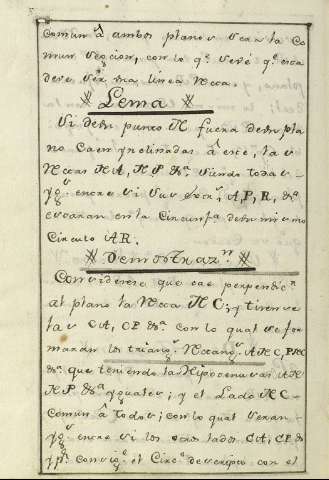 Comun â ambos planos sera la Co
mun seccion, con lo q.e se vé q.e esta
deve ser una linea Recta.
Lema
Si de un punto H fuera de un pla
no caen ynclinadas â este, las
Rectas HA, HP &.a siendo todas
yg.s entre si sus extr.s A, P, R, &.a
estaran en la Circunf.a de un mismo
Circulo AR.
Demostraz.n
Considerese que cae perpendic.r
al plano la Recta HC; y tirense
las CA, CP &.a con lo qual se for
marán los triang.s Rectang.s AHC, PHC
&.a que teniendo las Hipotenusas AH
HP &.a yguales; y el Lado HC
Comun â todos; con lo qual seran
yg.s entre si los otros lados CA, CP &.a
y p.r consig.e el Circ.o descripto con el